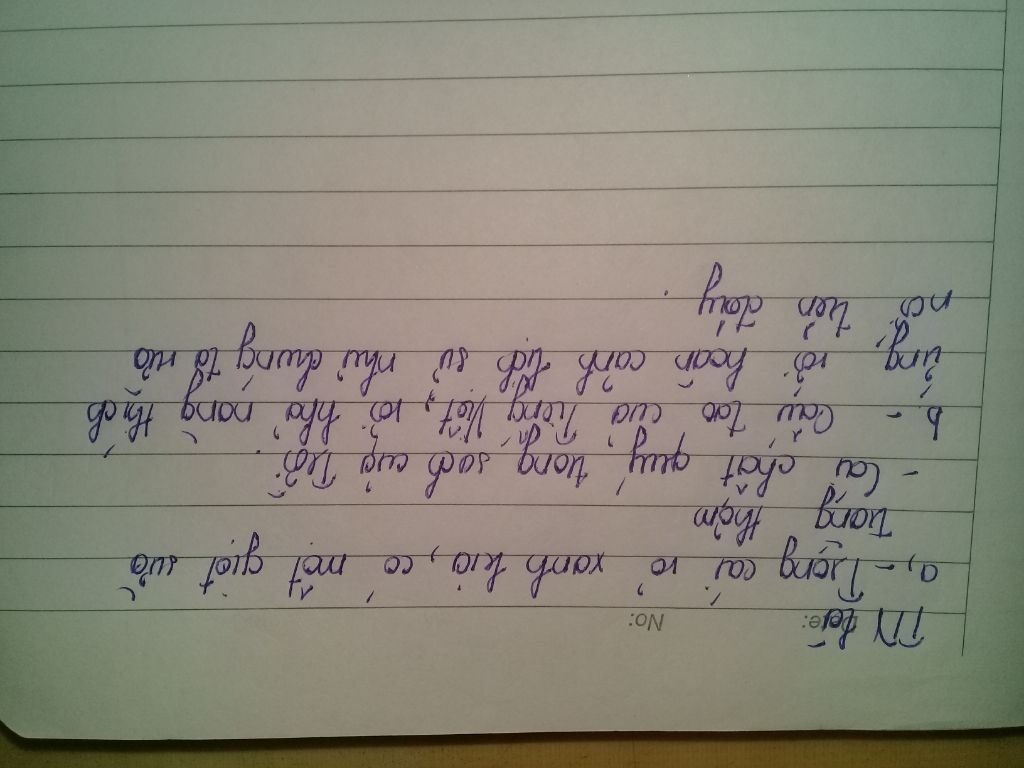 Date: No:
Trả lời
a, - Trong cái vỏ xanh kia, có một giọt sữa
trắng thơm
- Cái chất quý trong sạch của Trời.
b. - Cấu tạo của Tiếng Việt, với khả năng thích
ứng với hoàn cảnh lịch sử như chúng ta vừa
nói trên đây.